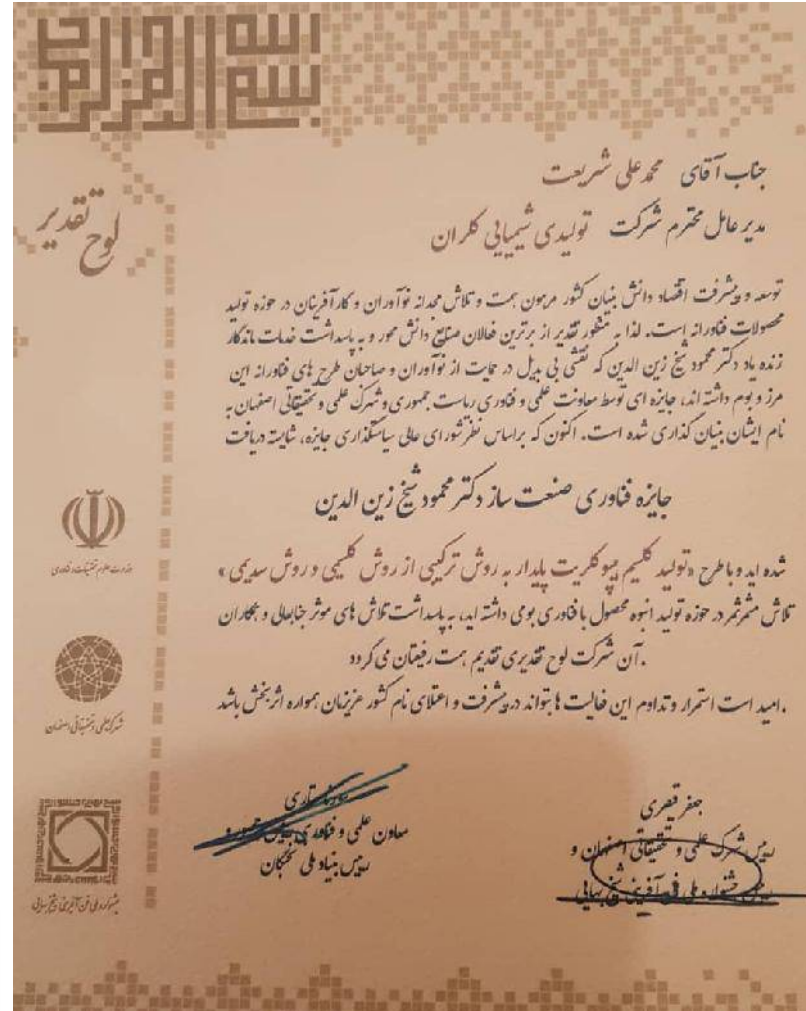 بسم الله الرحمن الرحیم
لوح تقدیر
جناب آقای محمدعلی شریعت
مدیرعامل محترم شرکت تولیدی شیمیایی کلران
توسعه و پیشرفت اقتصاد دانش بنیان کشور مرهون همت و تلاش مجدانه نوآوران و کارآفرینان در حوزه تولید
محصولات فناورانه است. لذا به منظور تقدیر از برترین فعالان صنایع دانش محور و به پاسداشت خدمات ماندگار
زنده یاد دکتر محمود شیخ زین الدین که نقشی بی بدیل در حمایت از نوآوران و صاحبان طرح های فناورانه این
مرز و بوم داشته اند، جایزه ای توسط معاونت علمی و فناوری ریاست جمهوری و شهرک علمی و تحقیقاتی اصفهان به
نام ایشان بنیان گذاری شده است. اکنون که براساس نظر شورای عالی سیاستگذاری جایزه، شایسته دریافت
جایزه فناوری صنعت ساز دکتر محمود شیخ زین الدین
شده اید و با طرح «تولید کلسیم هیپوکلریت پایدار به روش ترکیبی از روش کلسیمی و روش سدیمی»
تلاش مثمرثمر در حوزه تولید انبوه محصول با فناوری بومی داشته اید، به پاسداشت تلاش های موثر جنابعالی و همکاران
آن شرکت لوح تقدیری تقدیم همت رفیعتان می گردد.
امید است استمرار و تداوم این فعالیت ها بتواند در پیشرفت و اعتلای نام کشور عزیزمان همواره اثربخش باشد.
جعفر قیصری
رییس شهرک علمی و تحقیقاتی اصفهان و
رییس جشنواره ملی فن آفرینی شیخ بهایی
ستاری
معاون علمی و فناوری رییس جمهور و
رییس بنیاد ملی نخبگان
وزارت علوم، تحقیقات و فناوری
شهرک علمی و تحقیقاتی اصفهان
جشنواره ملی فن آفرینی شیخ بهایی